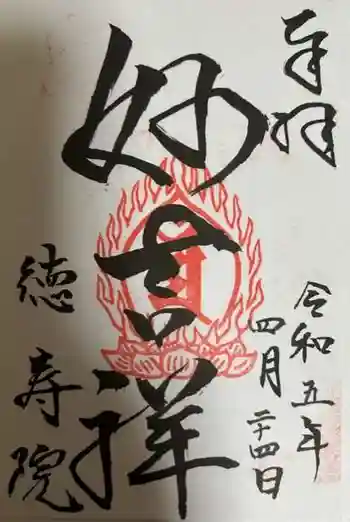 奉拝
令和五年
四月二十四日
妙吉祥
徳寿院